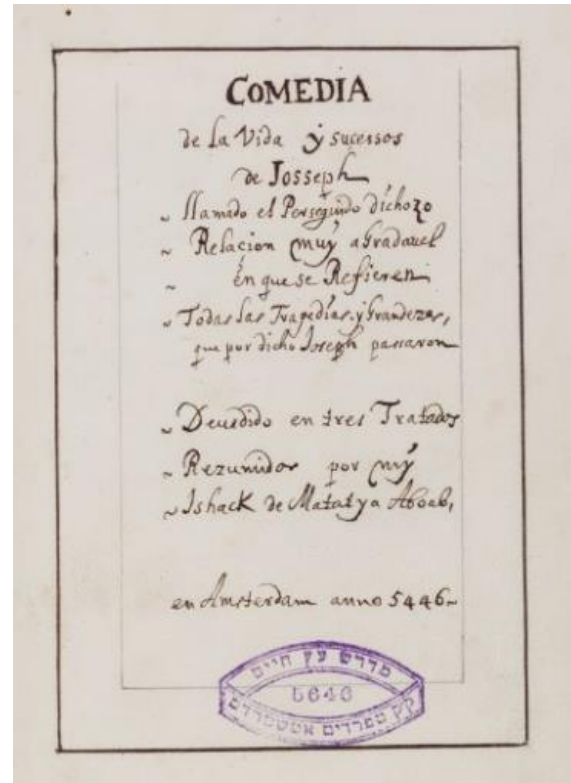 COMEDIA
de La Vida y sucessos
de Josseph
llamado el Perseguido dichozo
Relacion muy agradavel
en que se Refieren
Todas las Tragedias, y Grandezas,
que por dicho Joseph passaron
Devidido en tres Tratados
Rezumidos por my
Ishack de Matatya Aboab,
en Amsterdam anno 5446
מדרש עץ חיים
5646
קק ספרדים אמשטרדם